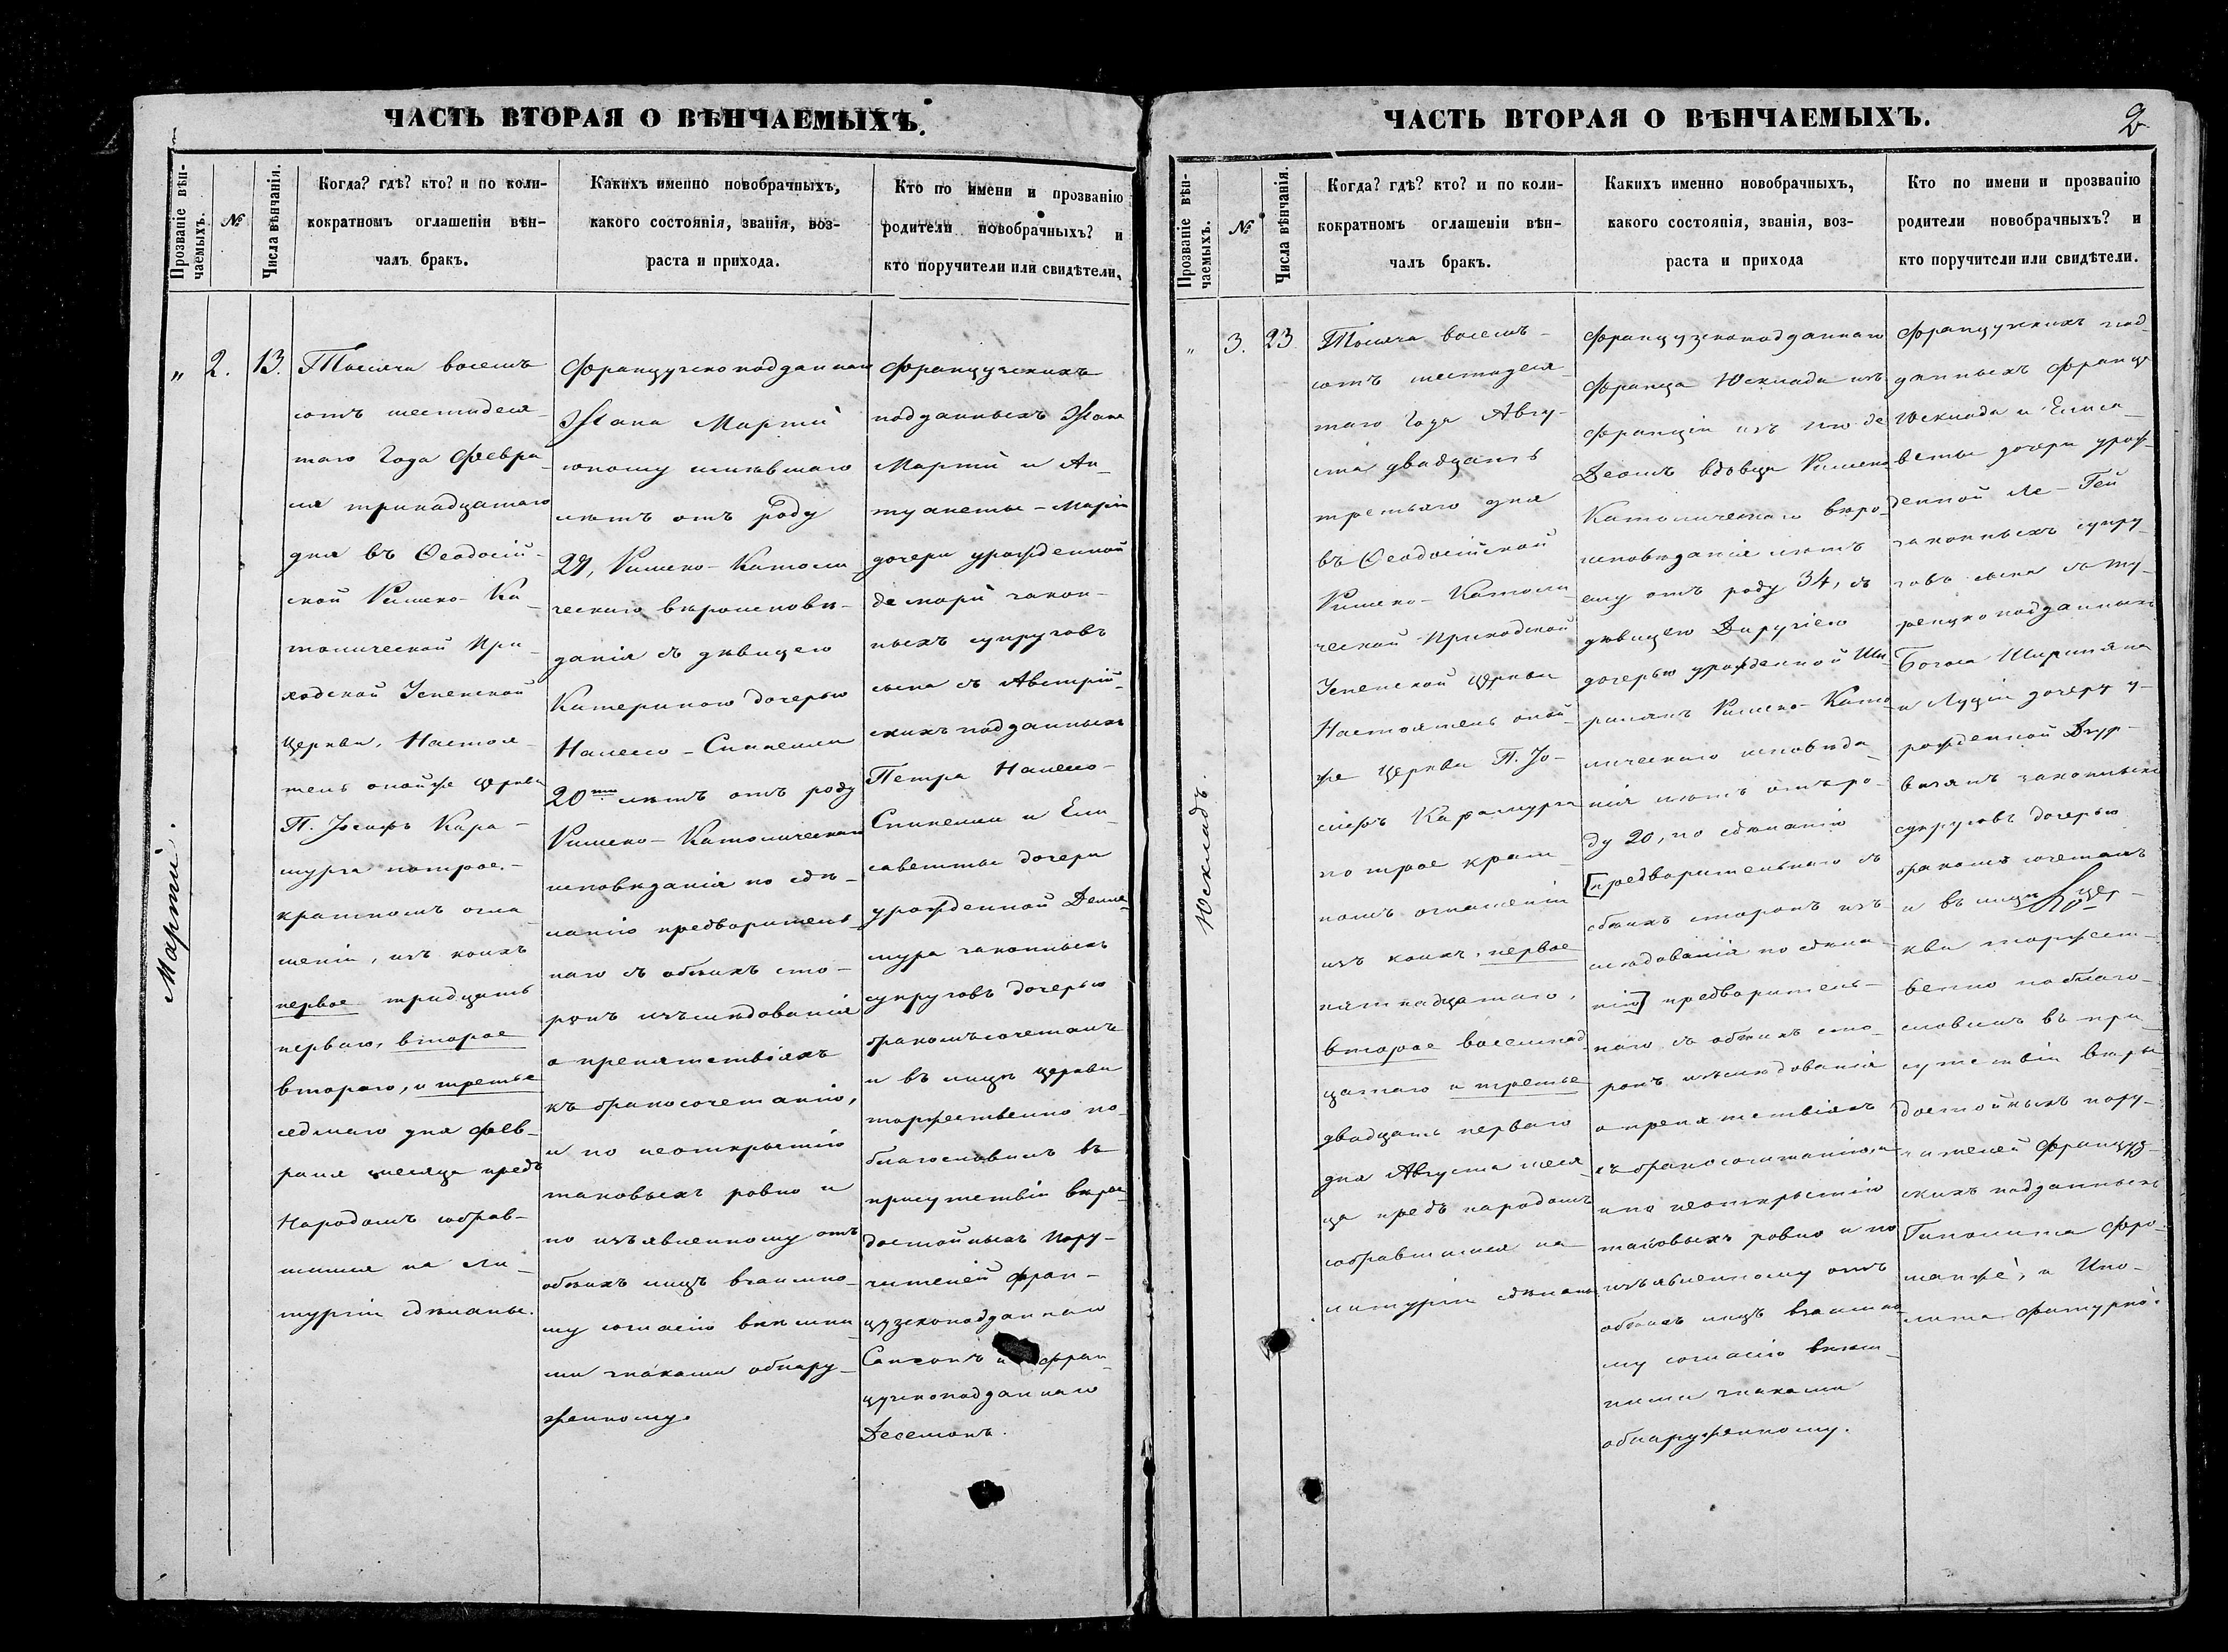 ЧАСТЬ ВТОРАЯ О ВѢНЧАЕМЫХЪ.
Прозваніе вѣн-
чаемыхъ.
№
Числа вѣнчанія.
Когда? гдѣ? кто? и по коли-
кократномъ оглашеніи вѣн-
чалъ бракъ.
Какихъ именно новобрачныхъ,
какого состоянія, званія, воз-
раста и прихода.
Кто по имени и прозванію
родители новобрачныхъ? и
кто поручители или свидѣтели,
Мартiи.
„ 2. 13.
Тысяча восемъ
сотъ шестидеся-
таго Года Февра-
ля тринадцатаго
дня въ Ѳеодосій-
ской Римско-Ка-
толической При-
ходской Успенской
Церкви, Настоя-
тель онойже Церкви
П. Іосифъ Кара-
мурза потрое-
кратномъ огла-
шеніи, изъ коихъ
первое тридцать
перваго, второе
втораго, и третье
седмаго дня Фев-
раля месяца предъ
Народомъ собрав-
шимся на Ли-
тургіи сдѣланы.
Французскоподданнаго
Жана Мартiи
юношу имѣвшаго
лѣтъ отъ роду
27, Римско-Католи-
ческаго вѣроисповѣ-
данія съ дѣвицею
Катериною дочерью
20ти лѣтъ отъ роду
Римско-Католическаго
исповѣданія по сдѣ-
ланію предваритель-
наго съ обѣихъ сто-
ронъ изъслѣдованія
о препятствіяхъ
къ бракосочетанію,
и по неоткрытію
таковыхъ ровно и
по изъявленному отъ
обѣихъ лицъ взаимно-
му согласію внѣшни-
ми знаками обнару-
женному.
Французскихъ
подданныхъ Жана
Мартiи и Ан-
туанеты-Маріи
дочери урожденной
закон-
ныхъ супруговъ
сына съ Австрій-
скихъ подданныхъ
Петра
и Ели-
саветты дочери
урожденной
законныхъ
супруговъ дочерью
бракомъ сочеталъ
и въ лицѣ Церкви
торжественно по-
благословилъ въ
присутствіи вѣро-
достойныхъ Пору-
чителей Фран-
цузскоподданнаго
Сансонъ и Фран-
цузскоподданнаго
ЧАСТЬ ВТОРАЯ О ВѢНЧАЕМЫХЪ.
2
Прозваніе вѣн-
чаемыхъ.
№
Числа вѣнчанія.
Когда? гдѣ? кто? и по коли-
кократномъ оглашеніи вѣн-
чалъ бракъ.
Какихъ именно новобрачныхъ,
какого состоянія, званія, воз-
раста и прихода
Кто по имени и прозванію
родители новобрачныхъ? и
кто поручители или свидѣтели.
Юскладъ.
„ 3. 23
Тысяча восемъ-
сотъ шестидеся-
таго Года Авгу-
ста двадцать
третьяго дня
въ Ѳеодосійской
Римско-Католи-
ческой Приходской
Успенской Церкви
Настоятель оной
же Церкви П. Іо-
сифъ Карамурза
по трое крат-
номъ оглашеніи
изъ коихъ, первое
пятнадцатаго,
второе восемнад-
цатаго и третье
двадцать перваго
дня Августа меся-
ца предъ народомъ
собравшимся на
литургіи сдѣланы
Французскоподданнаго
Франца Юсклада изъ
Франціи изъ
вдовца Римско
Католическаго вѣро-
исповѣданія лѣтъ
ему отъ роду 34, съ
дѣвицею
дочерью урожденной Ши-
ринянъ Римско-Като-
лическаго исповѣда-
нія лѣтъ отъ ро-
ду 20, по сдѣланію
[предварительнаго съ
обѣихъ сторонъ изъ-
слѣдованія по сдѣла-
нію] предваритель-
наго съ обѣихъ сто-
ронъ изъслѣдованія
о препятствіяхъ
къ бракосочитанію, и
и по неоткрытію
таковыхъ ровно и по
изъявленному отъ
обѣихъ лицъ взаимно-
му согласію внѣш-
ними знаками
обнаруженному.
Французскихъ под-
данныхъ Франца
Юсклада и Елиса-
веты дочери урож-
денной Ле-Гей
законныхъ супру-
говъ сына съ Ту-
рецкоподданныхъ
Богоса Шириняна
и Луціи дочери у-
рожденной
законныхъ
супруговъ дочерью
бракомъ сочеталъ
и въ лицѣ Цер-
кви торжест-
венно поблаго-
словилъ въ при-
сутствіи вѣро
достойныхъ пору-
чителей Француз-
скихъ подданныхъ
Гиполита Фро-
манже, и Ипо-
лита